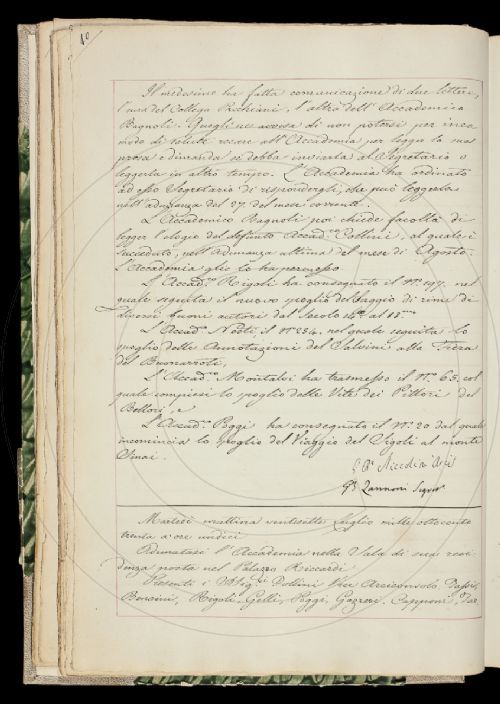 40
Il medesimo ha fatta comunicazione di due lettere,
l'una del Collega Pacchiani, l'altra dell'Accademico
Bagnoli. Quegli ne avvisa di non potersi per inco
modo di salute recare all'Accademia per leggere la sua
prosa e dimanda se debba inviarla al Segretario o
leggerla in altro tempo. L'Accademia ha ordinato
ad esso Segretario di rispondergli, che può leggerla
nell'adunanza del 27. del mese corrente.
L'Accademico Bagnoli poi chiede facoltà di
legger l'elogio del defunto Accad.co Collini, al quale è
succeduto, nell'adunanza ultima del mese di Agosto.
L'Accademia glie lo ha permesso
L'Accad.co Rigoli ha consegnato il N.o 197. nel
quale seguita il nuovo spoglio del Saggio di rime di
diversi buoni autori dal Secolo 14.o al 18.mo
L'Accad.co Nesti il N.o 234. nel quale seguita lo
spoglio delle Annotazioni del Salvini alla Fiera
del Buonarroti,
L'Accad.co Montalvi ha trasmesso il N.o 63. col
quale compiesi lo spoglio delle Vite dei Pittori del
Bellori, e
L'Accad.co Poggi ha consegnato il N.o 20 dal quale
incomincia lo spoglio del Viaggio del Sigoli al monte
Sinai.
G. B. Niccolini
G. B. Zannoni Segr.o
Martedì mattina ventisette Luglio mille ottocento
trenta a ore undici
Adunatasi l'Accademia nella Sala di sua resi
denza posta nel Palazzo Riccardi
Presenti i Sig.ri Vice Arciconsolo,
Bencini, Rigoli, Gelli, Poggi, Gazzeri, Capponi,